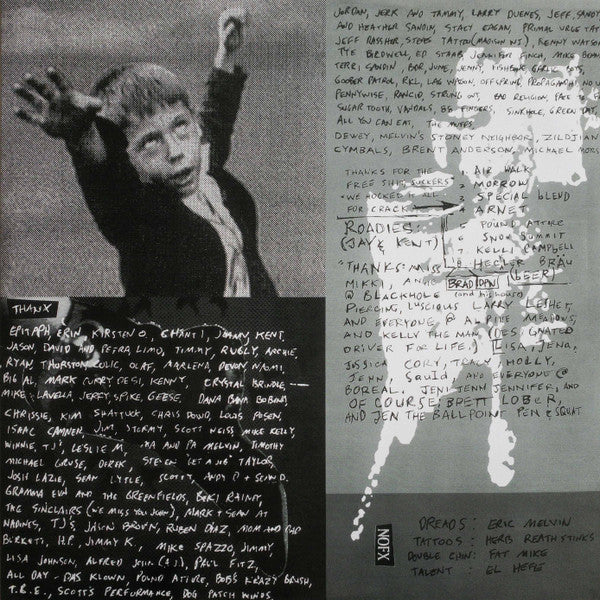 JORDAN, JERK AND TAMMY, LARRY DUENES, JEFF, SANDY
AND HEATHER SANDIN, STACY EGAN, PRIMAL URGE TAT
JEFF RASSHER, STEVE TATTOO (MADISON NJ), KENNY WATSON
TYE BIRDWELL, ED STAAB, JENNIFER FINCH, MIKE
TERRI SANDIN, BOB, JUNE, JENNY, FISHBONE
GOOBER PATROL, RKL, LAG WAGON, OFFSPRING, PROPAGANDHI, NO U
PENNYWISE, RANCID, STRUNG OUT, BAD RELIGION, FACE
SUGAR TOOTH, VANDALS, SINKHOLE, GREEN DAY,
ALL YOU CAN EAT, THE MUFFS,
DEWEY, MELVIN'S STONEY NEIGHBOR, ZILDJIAN
CYMBALS, BRENT ANDERSON, MICHAEL
THANKS FOR THE
FREE SHIT, SUCKERS
WE HOCKED IT ALL
FOR CRACK
1. AIR WALK
2. MORROW
SPECIAL BLEND
ARNET
POUND ATTIRE
6. SNOW SUMMIT
7. KELLI CAMPBELL
8. HECLER BRÄU
(BEER)
ROADIES:
(JAY & KENT)
"THANKS: MISS
MIKKI, ANGIE BRAD DAN
@ BLACKHOLE
PIERCING, LUSCIOUS LARRY LESHER,
AND EVERYONE @ ALPINE MEADOWS,
AND KELLY THE MAN (DESIGNATED
DRIVER FOR LIFE.) LISA, JENA,
JESSICA CORY, TRACY, HOLLY,
JENN SQUID AND EVERYONE @
BOREAL. JENI JENN JENNIFER, AND
OF COURSE, BRETT LOBER,
AND JEN THE BALLPOINT PEN & SQUAT.
THANX
EPITAPH, ERIN, KIRSTEN O., GHANTI, JOHNNY, KENT,
JASON, DAVID AND PETRA, LIMO, TIMMY, RUGLY, ARCHIE,
RYAN THORSTON COLIC, OLAF, MARLENA, DEVON, NAOMI,
BIG AL MARK CURRY DESI, KENNY, CRYSTAL BRINDLE,
MIKE LAVELLA, JERRY, SPIKE, GEESE, DANA BANA BOBANA,
CHRISSIE, KIM SHATTUCK, CHRIS DOWD, LOUIS POSEN,
ISAAC CAMNER, JIM, STORMY, SCOTT WEISS MIKE KELLY,
WINNIE, TJ, LESLIE M., MA AND PA MELVIN, TIMOTHY
MICHAEL GRUSE, DEREK, STEVEN "LET A JOB" TAYLOR,
JOSH LAZIE, SEAN LYTLE, SCOTT, ANDY P + SEAN D.
GRAMMA EVN AND THE GREENFIELDS, BEKI RAINDY,
THE SINCLAIRS (WE MISS YOU JOHN), MARK + SEAN AT
NADINES, TJ'S, JASON BROWN, RUBEN DIAZ, MOM AND DAD
BURKETT, H.P., JIMMY K., MIKE SPAZZO, JIMMY,
LISA JOHNSON, ALFRED JOHN (AJ), PAUL FITZ,
ALL DAY - DAS KLOWN, POUND ATTIRE, BOB'S KRAZY BRUSH,
T.B.E., SCOTTS PERFORMANCE, DOG PATCH WINOS.
NOFX
DREADS: ERIC MELVIN
TATTOOS: HERB REATHSTINKS
DOUBLE CHIN: FAT MIKE
TALENT: EL HEFE